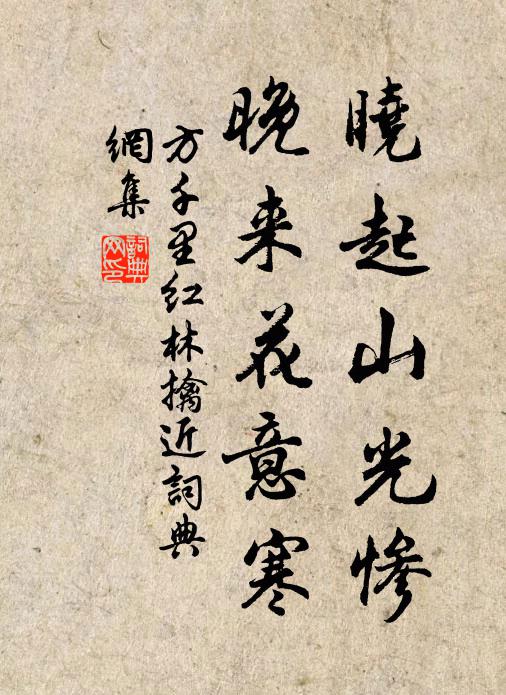 曉起山光慘
晚来花意寒
方千里红林擒近詞典
網集
詞典
网印